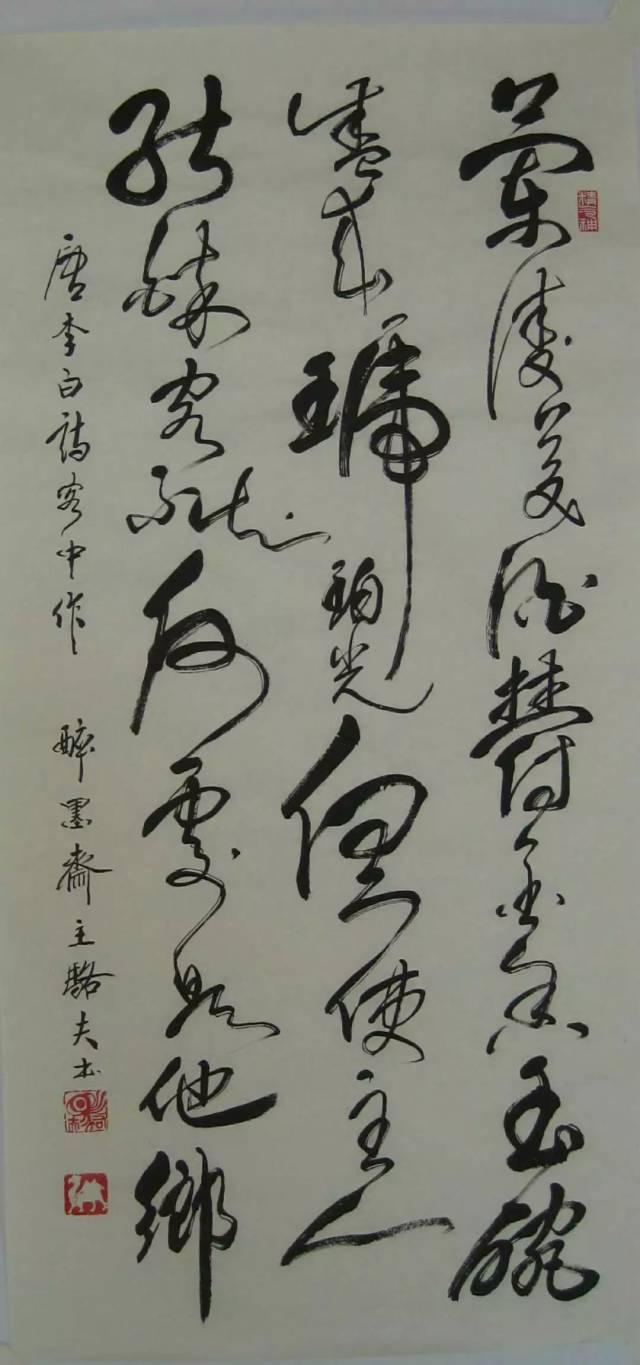 精气神
蘭陵美酒鬱金香玉碗
盛來琥珀光但使主人
能醉客不知何處是他鄉
唐李白詩客中作 醉墨齋主駱夫书